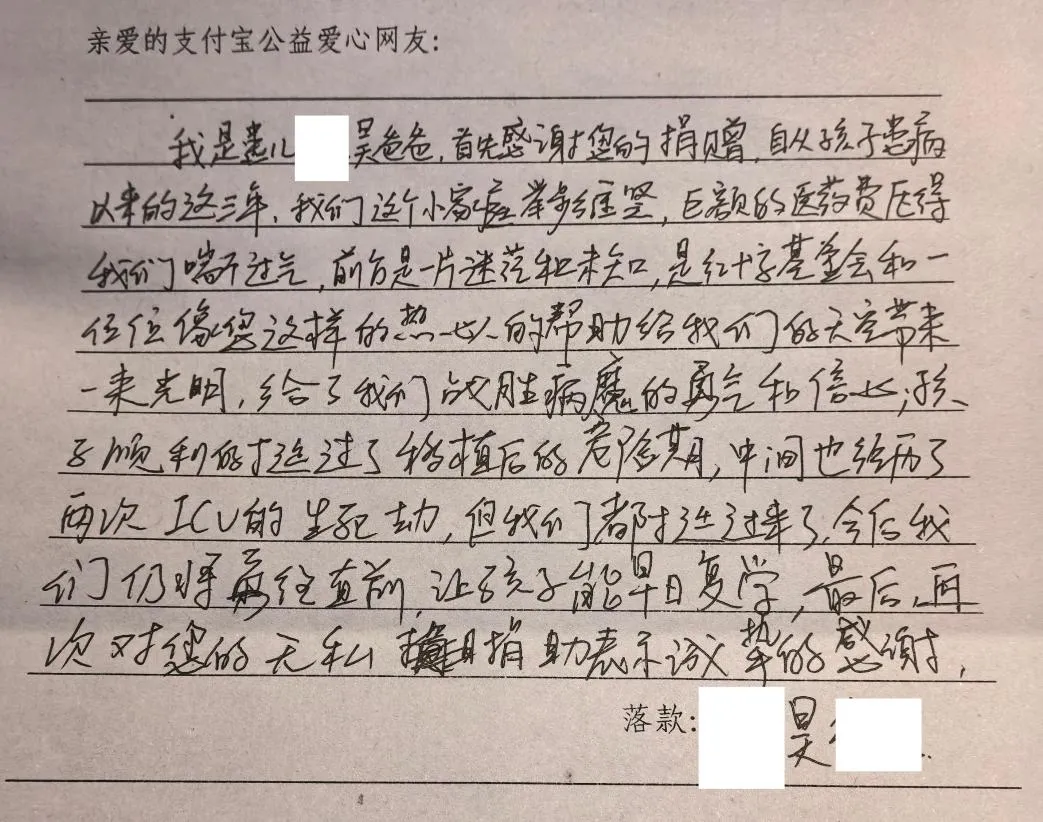 亲爱的支付宝公益爱心网友:
我是患儿 吴爸爸,首先感谢您的捐赠,自从孩子患病
以来的这三年,我们这个小家庭举步维坚,巨额的医药费压得
我们喘不过气,前方是一片迷茫和未知,是红十字基金会和一
位位像您这样的热心人的帮助给我们的天空带来
一束光明,给了我们战胜病魔的勇气和信心;孩
子顺利的挺过了移植后的危险期,中间也经历了
两次ICU的生死劫,但我们都挺过来了,今后我
们仍将勇往直前,让孩子能早日复学,最后,再
次对您的无私捐助表示诚挚的感谢,
落款: 吴